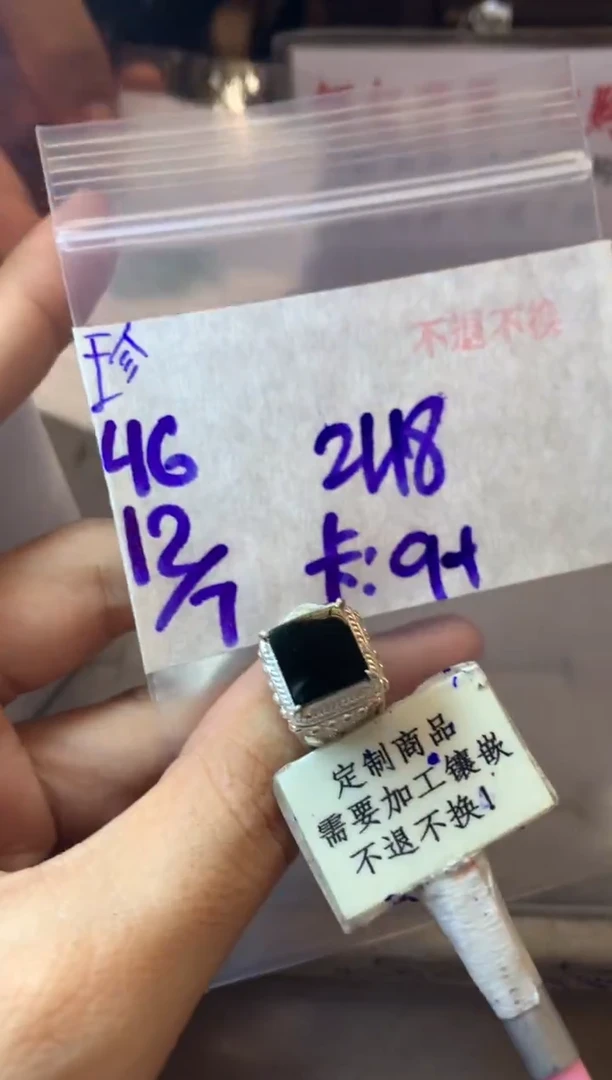 不退不换
珍
46 2418
12/7 卡:9+
定制商品
需要加工镶嵌
不退不换!